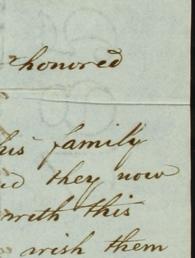 honored
his family
they now
with this
wish them